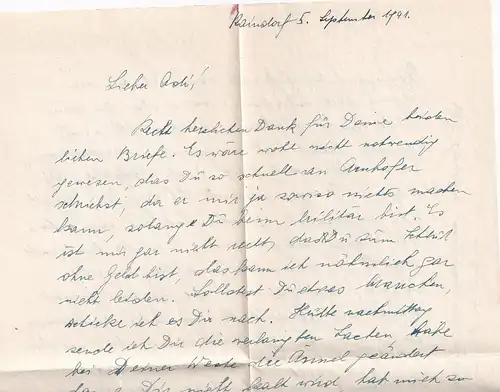 Raindorf 5. September 1941.
Lieber Adi!
Recht herzlichen Dank für Deine beiden
lieben Briefe. Es wäre wohl nicht notwendig
gewesen, das Du so schnell an Arnhofer
schriebst, da er mir ja sowiso nichts machen
kann, solange Du beim Militär bist. Es
ist mir gar nicht recht, daß Du zum Schluß
ohne Geld bist, das kann ich nähmlich gar
nicht leiden. Solltest Du etwas brauchen,
schicke ich es Dir nach. Heute nachmittag
sende ich Dir die verlangten Sachen, habe
bei Deiner Weste die Ärmel geändert
Dir nicht kalt wird, hat mich so